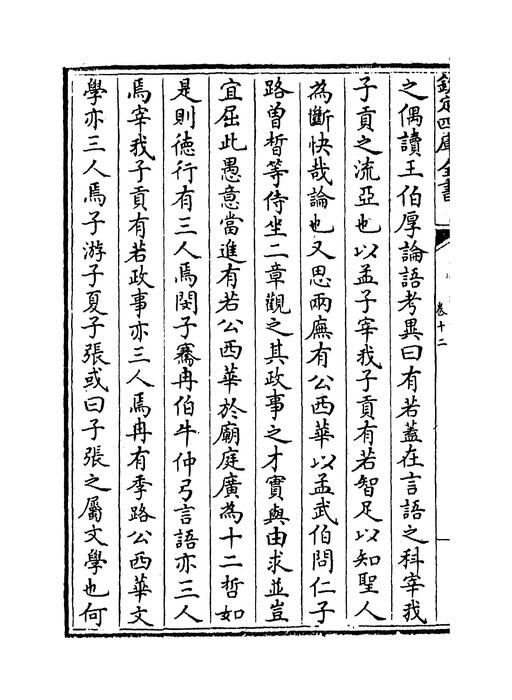 欽定四庫全書
卷十二
之偶讀王伯厚論語考異曰有若蓋在言語之科宰我
子貢之流亞也以孟子宰我子貢有若智足以知聖人
為斷快哉論也又思兩廡有公西華以孟武伯問仁子
路曾晳等侍坐二章觀之其政事之才實與由求並豈
宜屈此愚意當進有若公西華於廟庭廣為十二哲如
是則徳行有三人焉閔子騫冉伯牛仲弓言語亦三人
焉宰我子貢有若政事亦三人焉冉有季路公西華文
學亦三人焉子游子夏子張或曰子張之屬文學也何